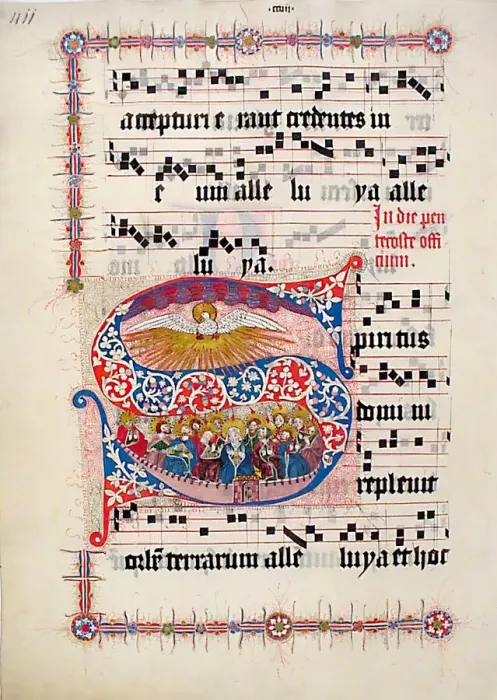 accepturi e rant credentes in
e um alle lu ya alle
lu ya.
In die pen
tecoste offi
cium.
Spiritus
domi ni
repleuit
orbē terrarum alle luya et hoc